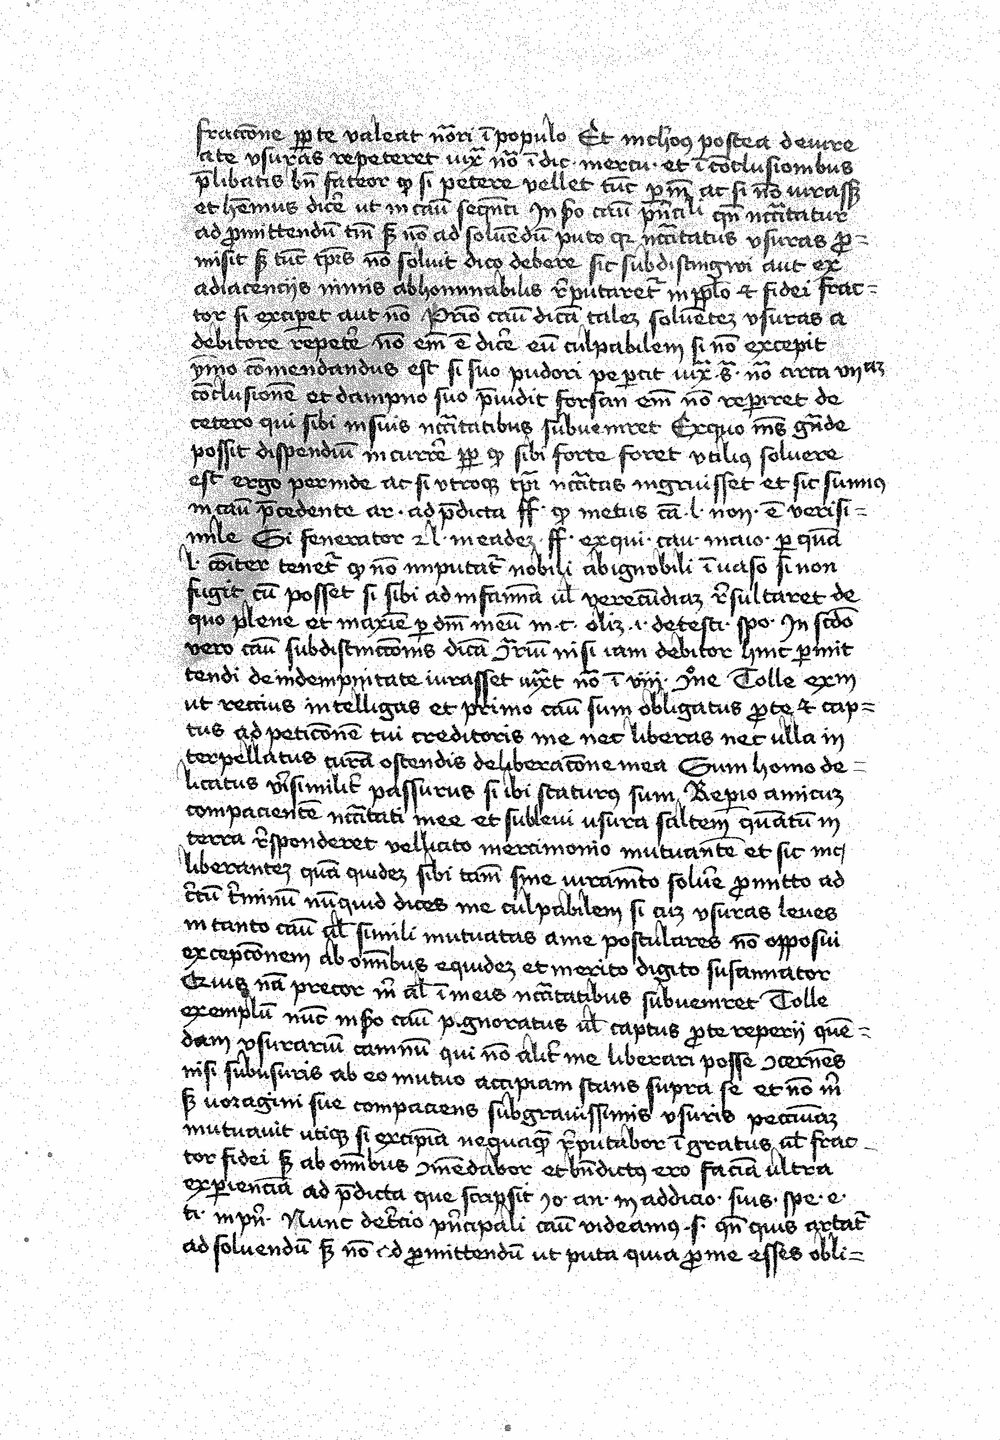 fraccōne ꝓpt̄e valeat nōri ī populo Et in cħo postea devire
ate vsuras repeteret iuxᵃ nōᵃ ī dic. mercu. et ī cōclusionibus
p̄libatis bn̄ fateor ꝙ si petere vellet tūc ꝑm̄ ac si nō iurass̄
et hēmus dicē ut in caū seqn̄ti In ṗo caū pn̄cili qn̄ nc̄citatur
ad ꝓmittendū tm̄ sꝫ nō ad soluēdū puto qꝛ nc̄citatus vsuras ꝓ=
misit sꝫ tūc tp̄is nō soluit dico debere sic subdistingwi aut ex
adiacencijs nimis abhominabilis r̄putaret᷑ in pp̄lo ⁊ fidei frac=
tor si exciperet aut nō Prīo caū dicā talez soluētez vsuras a
debitore repetē nō em̄ ē dicē eū culpabilem si nō excepit
ymo cōmendandus est si suo pudori pepercit iuxᵃ s. nōᵃ circa vijᵃᵐ
cōclusionē et dampno suo p̄uidit forsan em̄ nō reperiret de
cetero qui sibi in suis nc̄citatibus subueniret Ex quo īns gn̄de
possit dispendiū incurrē ꝓp ꝙ sibi forte foret vtiliꝰ soluere
est ergo perinde ac si vtroqꝫ tp̄i nc̄citas ingruisset et sic sumꝰ
in caū p̄cedente ar. ad p̄dicta ff. ꝙ metus cā. l. non. ē verisi=
mile Si fenerator ⁊ l. in eadez ff. ex qui. cau. maio. per quā
l. cōiter tenet᷑ ꝙ nō imputat᷑ nobili ab ignobili īuaso si non
fugit cū posset si sibi ad infamiā ul̄ verecūdiaz r̄sultaret de
quo plene et maxīe ꝑ dm̄ meū in. c. oliz. i. de testi. spo. In scdo
vero caū subdistinccōnis dicā ꝯriū nisi iam debitor hinc ꝑmit
tendi de indempnitate iurasset iuxᵗ nōᵃ ī viij. ꝯne Tolle exm̄
ut reccius intelligas et primo caū sum obligatus ꝓ te ⁊ cap=
tus ad peticōnē tui creditoris me nec liberas nec ulla in
terpellatus curā ostendis de liberacōne mea Sum homo de=
licatus v̄isimilit᷑ passurus si ibi staturꝰ sum Reperio amicuz
compacientē nc̄citati mee et sub leui usura saltem quātū in
terra r̄sponderet vel licito mercimonio mutuantē et sic me
liberantez quā quidez sibi tam̄ sine iuramto soluē ꝓmitto ad
c̄tū t̄minū nūquid dices me culpabilem si cuz vsuras leues
in tanto caū al̄ simili mutuatas a me postulares nō opposui
excepcōnem ab omībus equidez et merito digito susannator
Quis nā precor m̄ al̄ ī meis nc̄citatibus subueniret Tolle
exemplū nūc in ṗo caū pignoratus ul̄ captus ꝓ te reperij quē=
dam vsurariū caminū qui nō alit᷑ me liberari posse ꝯcernēs
nisi sub usuris ab eo mutuo accipiam stans supra se et nō m̄
sꝫ voragini sue compaciens sub grauissimis vsuris pecuniaz
mutuauit utiqꝫ si excipiā nequaqꝫ r̄putabor īgratus al̄ frac
tor fidei sꝫ ab omībus ꝯmēdabor et bn̄dictꝰ ero faciā ultra
experienciā ad p̄dicta que scripsit Jo. an. in addicio. suis. spe. e.
ti. in pn̄. Nunc de t̄cio pn̄cipali caū videamꝰ .s. qn̄ quis artat᷑
ad soluendū sꝫ nō ad ꝓmittendū ut puta quia ꝓ me esses obli=